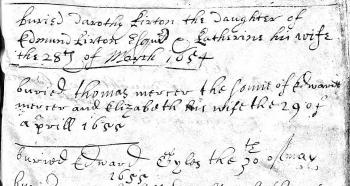 buried darothy Kirton the daughter of
Edmund Kirton Esqr & Katherine his wife
the 28th of March 1654
buried thomas mercer the sonn of Edward
mercer and Elizabeth his wife the 29 of
aprill 1655
buried Edward Eyles the 30 of may
1655
buried